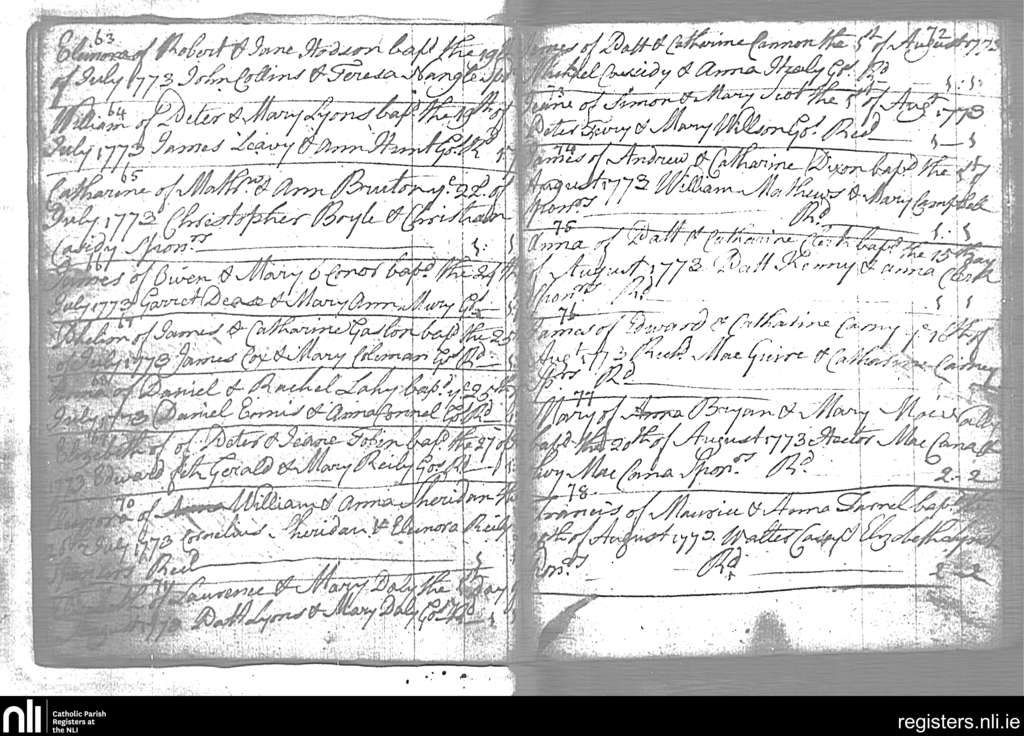 63
Elinora of Robert & Jane Hodson bapd. the 19th
of July 1773 John Collins & Teresa Nangle Spr
64
William of Peter & Mary Lyons bapd. the 19th of
July 1773 James Leavy & Ann Hunt Gos. Rd
65
Catharine of Mathw & Ann Bruton ye 22d. of
July 1773 Christopher Boyle & Christian
Casidy Sponrs
66
James of Owen & Mary O Conor bapd. the 24th
July 1773 Garret Dease & Mary Ann Gos
67
Phelim of James & Catharine Gaston bapd the 25
of July 1773 James Cox & Mary Coliman Gos. Rd
68
Anna of Daniel & Rachel Lahy bapd. ye 25th
July 1773 Daniel Ennis & Anna Connel Gos Rd
69
Elizabeth of of Peter & Jeane Tobin bapd. the 27 of
1773 Edward Fitz Gerald & Mary Reily Gos Rd
70
Elenora of Anna William & Anna Sheridan the
28th July 1773 Cornelius Sheridan & Elenora Reily
Sponsors Recd
71
of Laurence & Mary Daly the 5th Day
August 1773 Patt Lyons & Mary Daly Gos. Rd
72
James of Patt & Catharine Cannon the 5th of August 1773
Michael Cassidy & Anna Healy Gos. Rd
5 - 5
73
Jeane of Simon & Mary Scot the 5th of Augt 1773
Peter Fury & Mary Willson Gos. Recd 5 - 5
74
James of Andrew & Catharine Dixon bapd. the
August 1773 William Mathews & Mary Campbell
Sponrs Rd 5 - 5
75
Anna of Patt & Catharine Clerk bapd. the 15th day
of August 1773 Patt Kenny & Anna Clerk
Sponrs Rd 5 5
76
James of Edward & Catharine Carny ye 18th of
Augt. 1773 Richd. Mac Guire & Catharine Carney
Sprs Rd
77
Mary of Anna Bryan & Mary Mac Cally
bapd. the 20th of August 1773 Hector Mac Cana &
Mac Canna Sponrs Rd. 2 - 2
78
Francis of Maurice & Anna Farrel bapd. the
of August 1773 Walter Casey & Elizabeth Lynch
Sponrs Rd 2 - 2
nli
Catholic Parish
Registers at
the NLI
registers.nli.ie